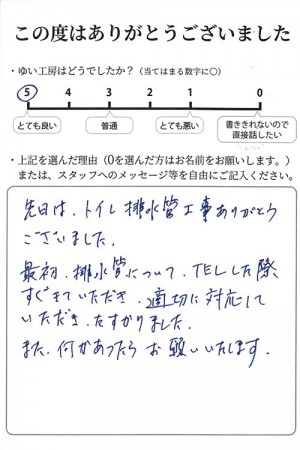 この度はありがとうございました
・ゆい工房はどうでしたか？（当てはまる数字に○）
5 4 3 2 1 0
とても良い 普通 とても悪い 書ききれないので直接話したい
・上記を選んだ理由（0を選んだ方はお名前をお願いします。）
または、スタッフへのメッセージ等を自由にご記入ください。
先日は、トイレ排水管工事ありがとう
ございました。
最初、排水管について、TELした際
すぐきていただき、適切に対応して
いただき、たすかりました。
また、何かあったらお願いいたします。